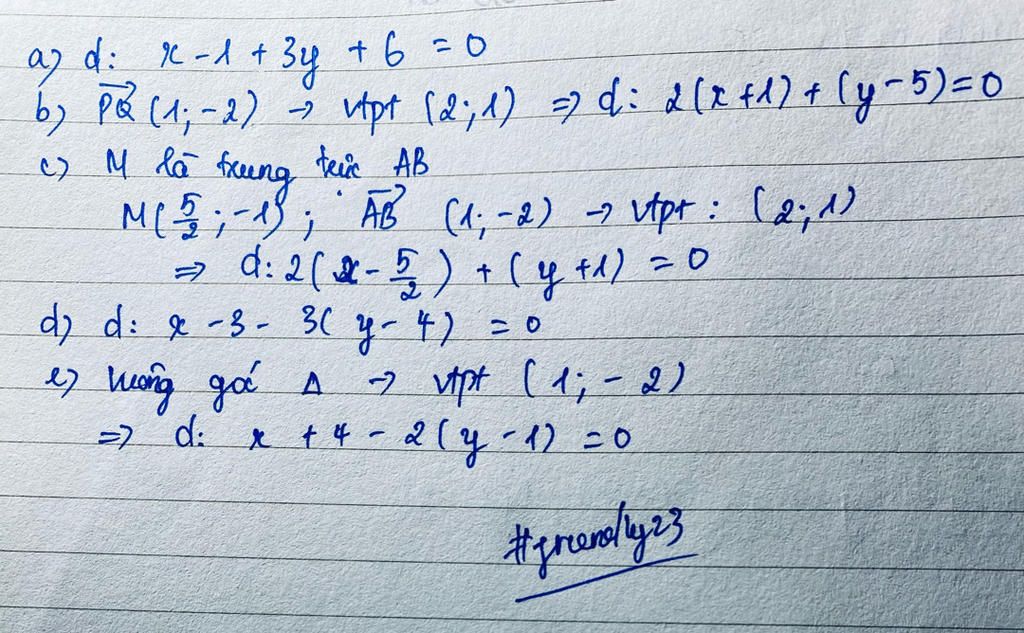 a) d: x - 1 + 3y + 6 = 0
b) \overrightarrow{PQ} (1; -2) → vtpt (2; 1) ⇒ d: 2(x+1) + (y-5) = 0
c) M là trung trực AB
M(\frac{5}{2}; -1); \overrightarrow{AB} (1; -2) → vtpt: (2; 1)
⇒ d: 2(x - \frac{5}{2}) + (y+1) = 0
d) d: x - 3 - 3(y - 4) = 0
e) Vuông góc Δ → vtpt (1; -2)
⇒ d: x + 4 - 2(y - 1) = 0